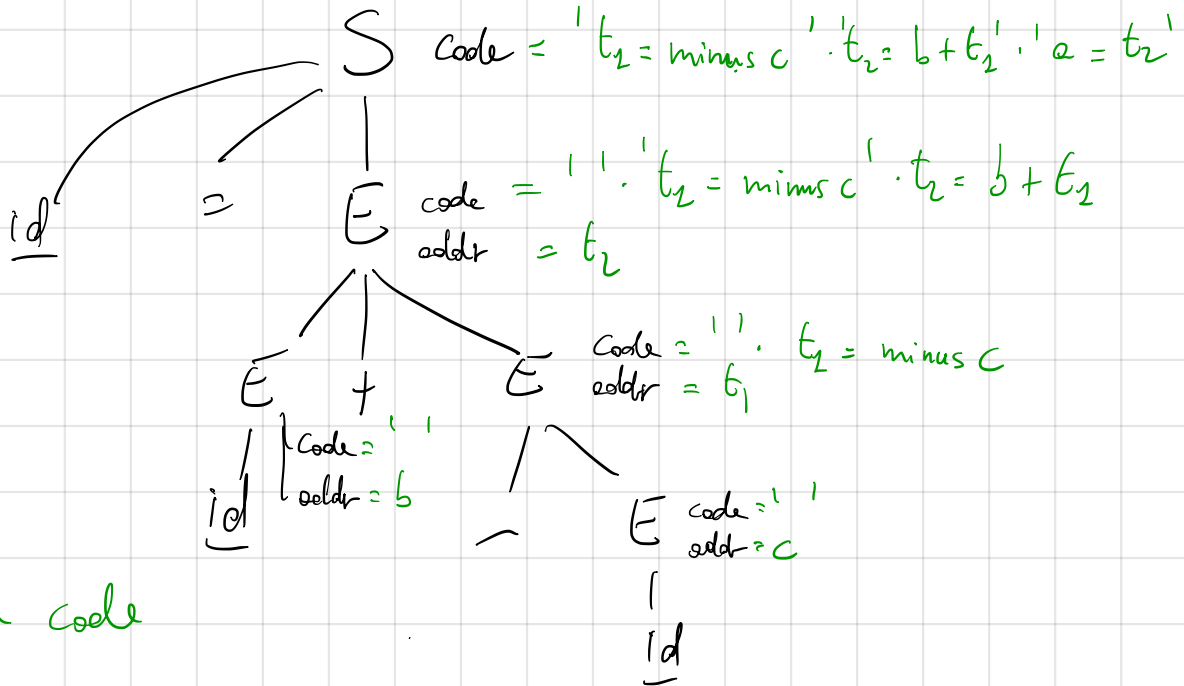 S code = 't₁ = minus c' · 't₂ = b + t₁' · 'a = t₂'
id = E code = '' · 't₁ = minus c' · t₂ = b + t₁
addr = t₂
E + E code = '' · t₁ = minus c
addr = t₁
code = ''
addr = b
id - E code = ''
addr = c
code
id